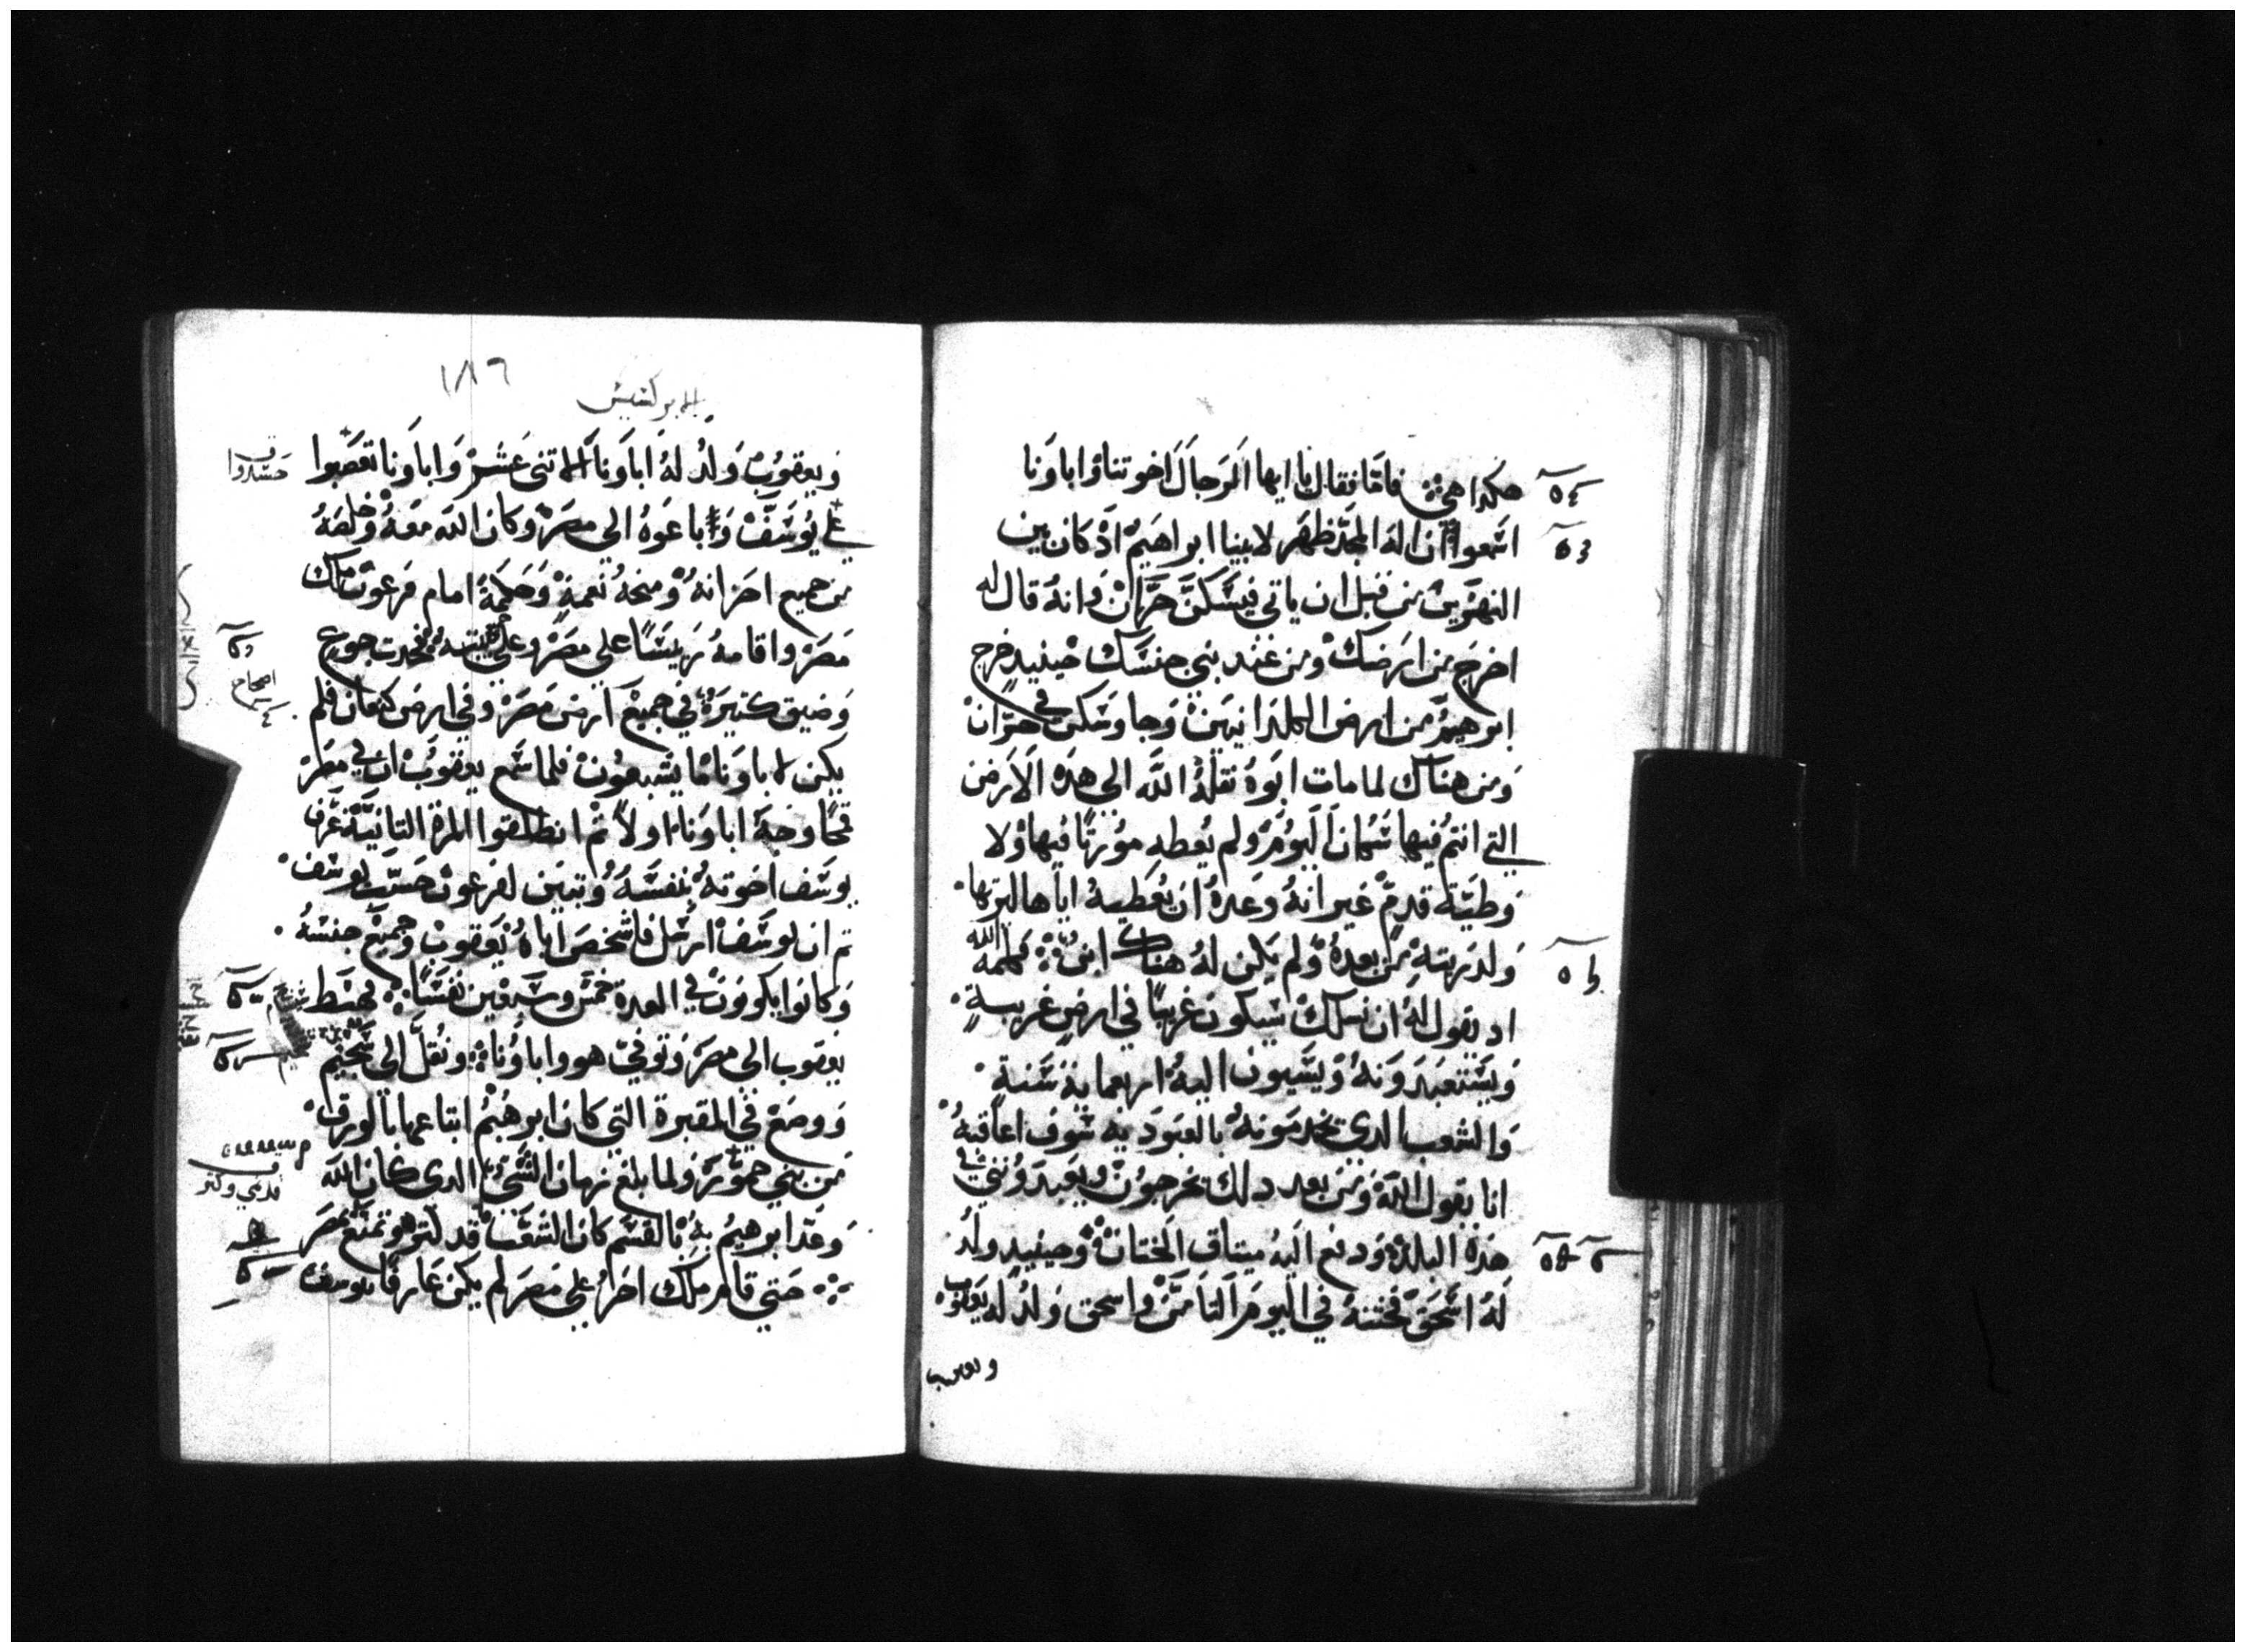 هكدا هي فاما فقال يا ايها الرجال اخوتنا واباونا
اسمعوا ان اله المجد ظهر لابينا ابراهيم اد كان بين
النهرين من قبل ان ياتي فيسكن حران وانه قال له
اخرج من ارضك ومن عند بني جنسك حينيد خرج
ابرهيم من ارض الكلدانيين وجا وسكن في حران
ومن هناك لما مات ابوه نقله الله الي هده الارض
التي انتم فيها سكان اليوم ولم يعطه مورتا فيها ولا
وطية قدم غير انه وعده ان يعطيه اياها ليرتها
ولدريته من بعده ولم يكن له هناك ابن فكلمه الله
اد يقول له ان نسلك سيكون غريبا في ارض غريبة
ويستعبدونه ويسيون اليه اربعماية سنة
والشعب الدي يخدمونه بالعبودية سوف اعاقبه
انا يقول الله ومن بعد دلك يخرجون ويعبدونني في
هده البلده ودفع اليه ميتاق الختان وحينيد ولد
له اسحق فختنه في اليوم التامن واسحق ولد له يعقوب
ويعقوب
١٨٦
الابركسيس
ويعقوب ولد له اباونا الاتني عشر واباونا تعصبوا
حسدوا
علي يوسف وباعوه الي مصر وكان الله معه وخلصه
من جميع احزانه ومنحه نعمة وحكمة امام فرعون ملك
مصر واقامه رييسا علي مصر وعلي بيته فحدت جوع
اصحاح
وضيق كتيرة في جميع ارض مصر وفي ارض كنعان فلم
يكن لاباونا ما يشبعون فلما سمع يعقوب ان في مصر
قمحا وجه اباونا اولا تم انطلقوا المرة التانية عرف
يوسف اخوته بنفسه وتبين لفرعون حسب يوسف
تم ان يوسف ارسل فاشخص اباه يعقوب وجميع جنسه
وكانوا يكونون في العدة خمس وسبعين نفسا فهبط
يعقوب الي مصر وتوفي هو واباونا ونقل الي شخيم
ووضع في المقبرة التي كان ابرهيم ابتاعها بالورق
من بني حمور ولما بلغ زمان الشي الدي كان الله
وعد ابرهيم به بالقسم كان الشعب قد نمي وكتر بمصر
حتي قام ملك اخر علي مصر لم يكن عارفا بيوسف